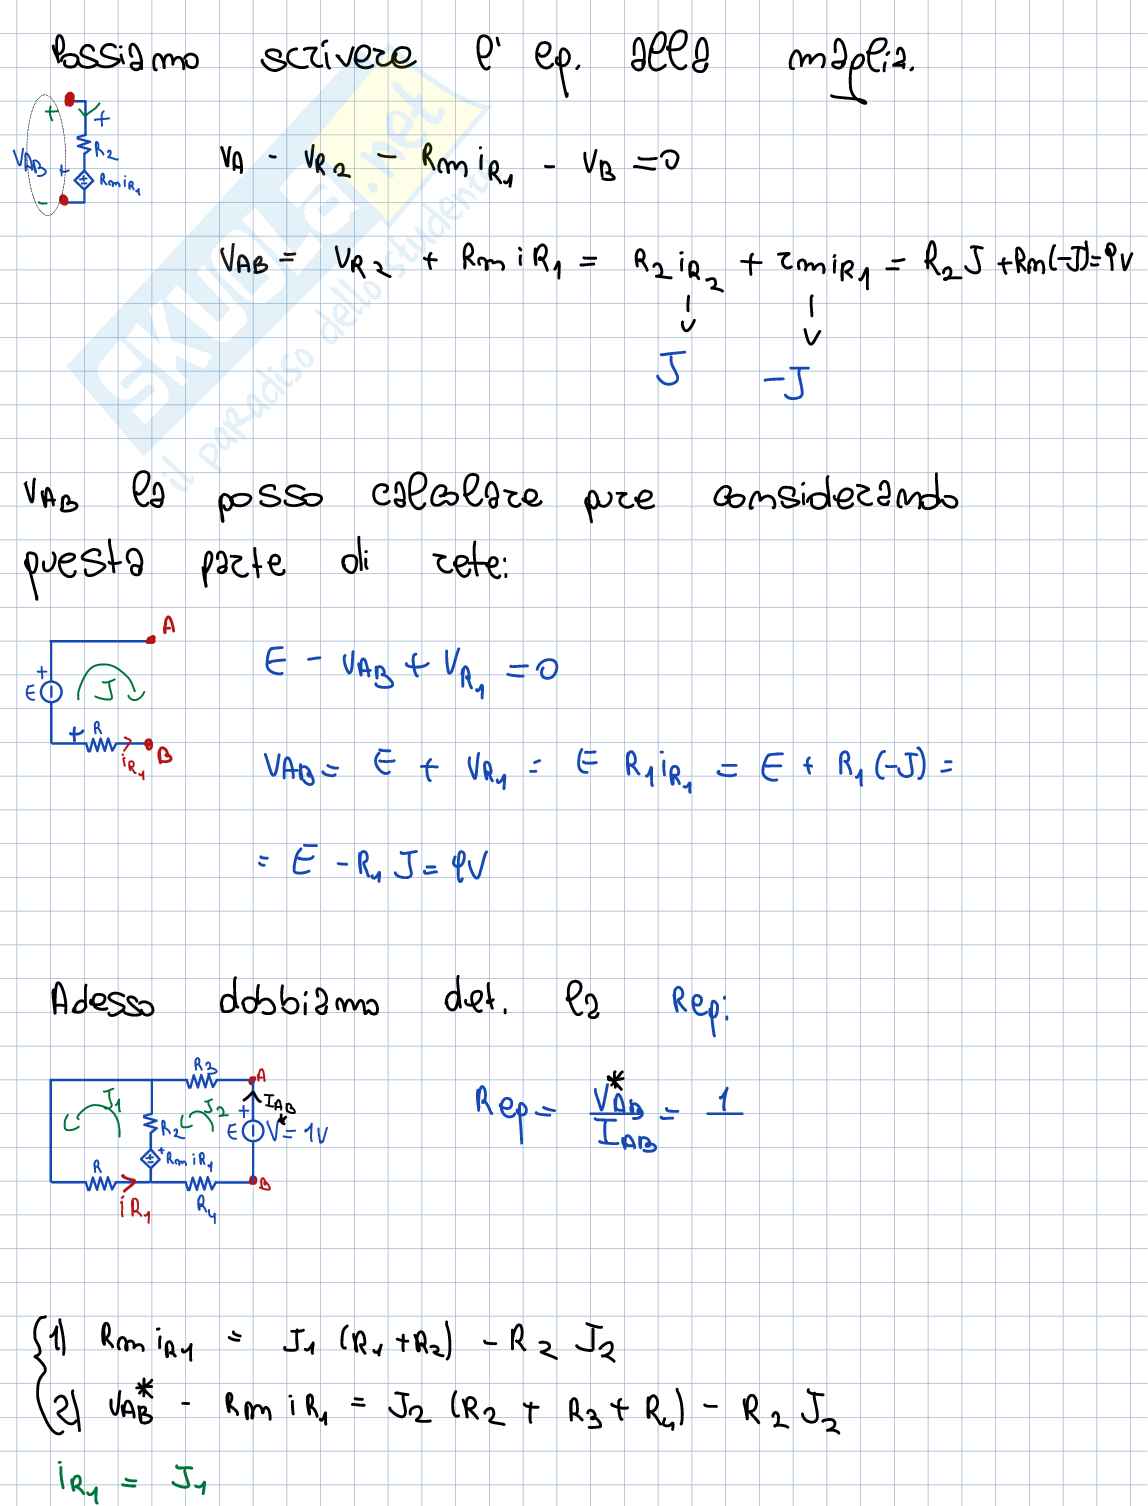 Possiamo scrivere l' eq. alla maglia.
+ +
VAB R2
+ RmiR1
-
VA - VR2 - RmiR1 - VB = 0
VAB = VR2 + RmiR1 = R2iR2 + rmiR1 = R2J + Rm(-J) = 9V
J -J
SKUOLA.net
il paradiso dello studente
VAB la posso calcolare pure considerando
questa parte di rete:
A
+
E J
+ R
iR1 B
E - VAB + VR1 = 0
VAB = E + VR1 = E R1iR1 = E + R1(-J) =
= E - R1J = 9V
Adesso dobbiamo det. la Req:
R3 A
J1 J2 IAB
R2 + E V* = 1V
+ RmiR1
R B
iR1 R4
Req = VAB* / IAB = 1
1) RmiR1 = J1(R1+R2) - R2J2
2) VAB* - RmiR1 = J2(R2+R3+R4) - R2J2
iR1 = J1